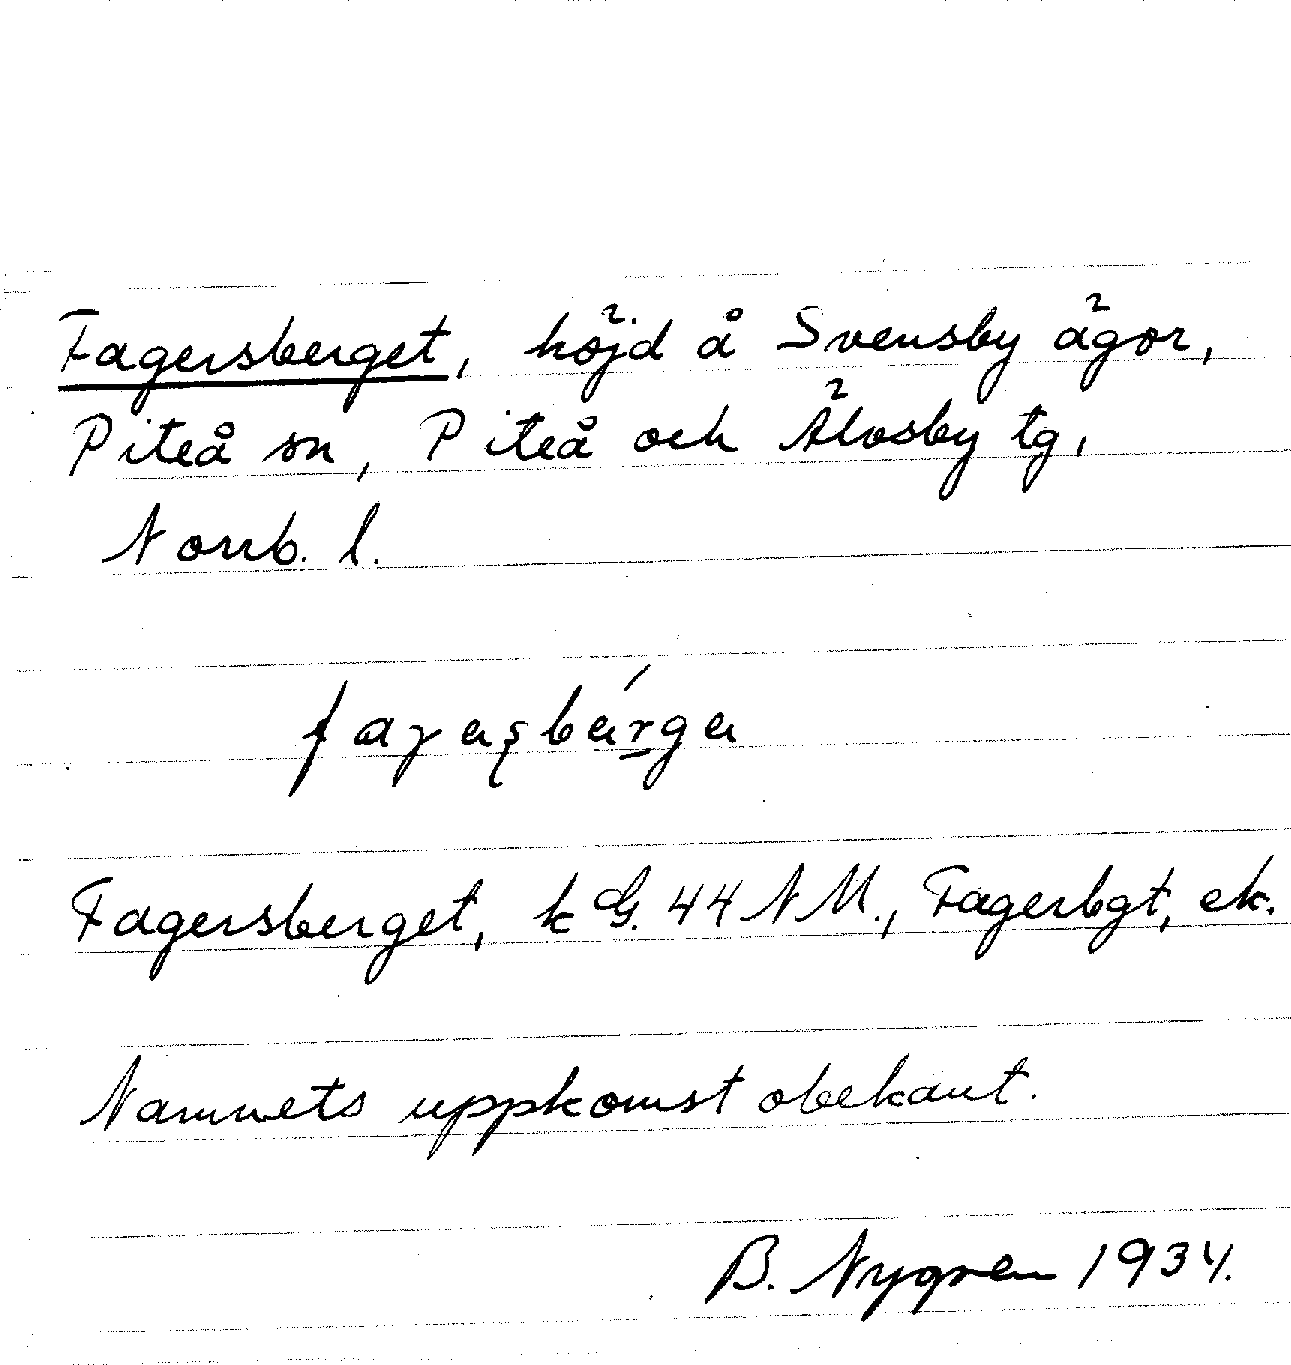 Fagersberget, höjd å Svensby ägor,
Piteå sn, Piteå och Älvsby tg,
Norrb. l.
Fagersberget, k G. 44 N M., Fagerbgt, ek.
Namnets uppkomst obekant.
B. Nygren 1934.